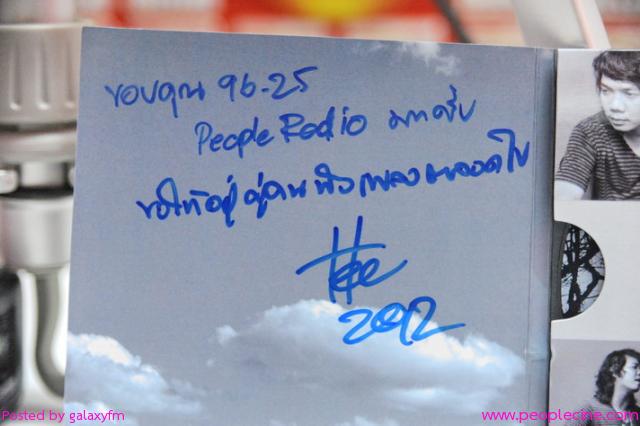 ขอบคุณ 96.25
People Radio มากครับ
ขอให้อยู่คู่คนฟังเพลงตลอดไป
2012
Posted by galaxyfm
www.peoplecine.com